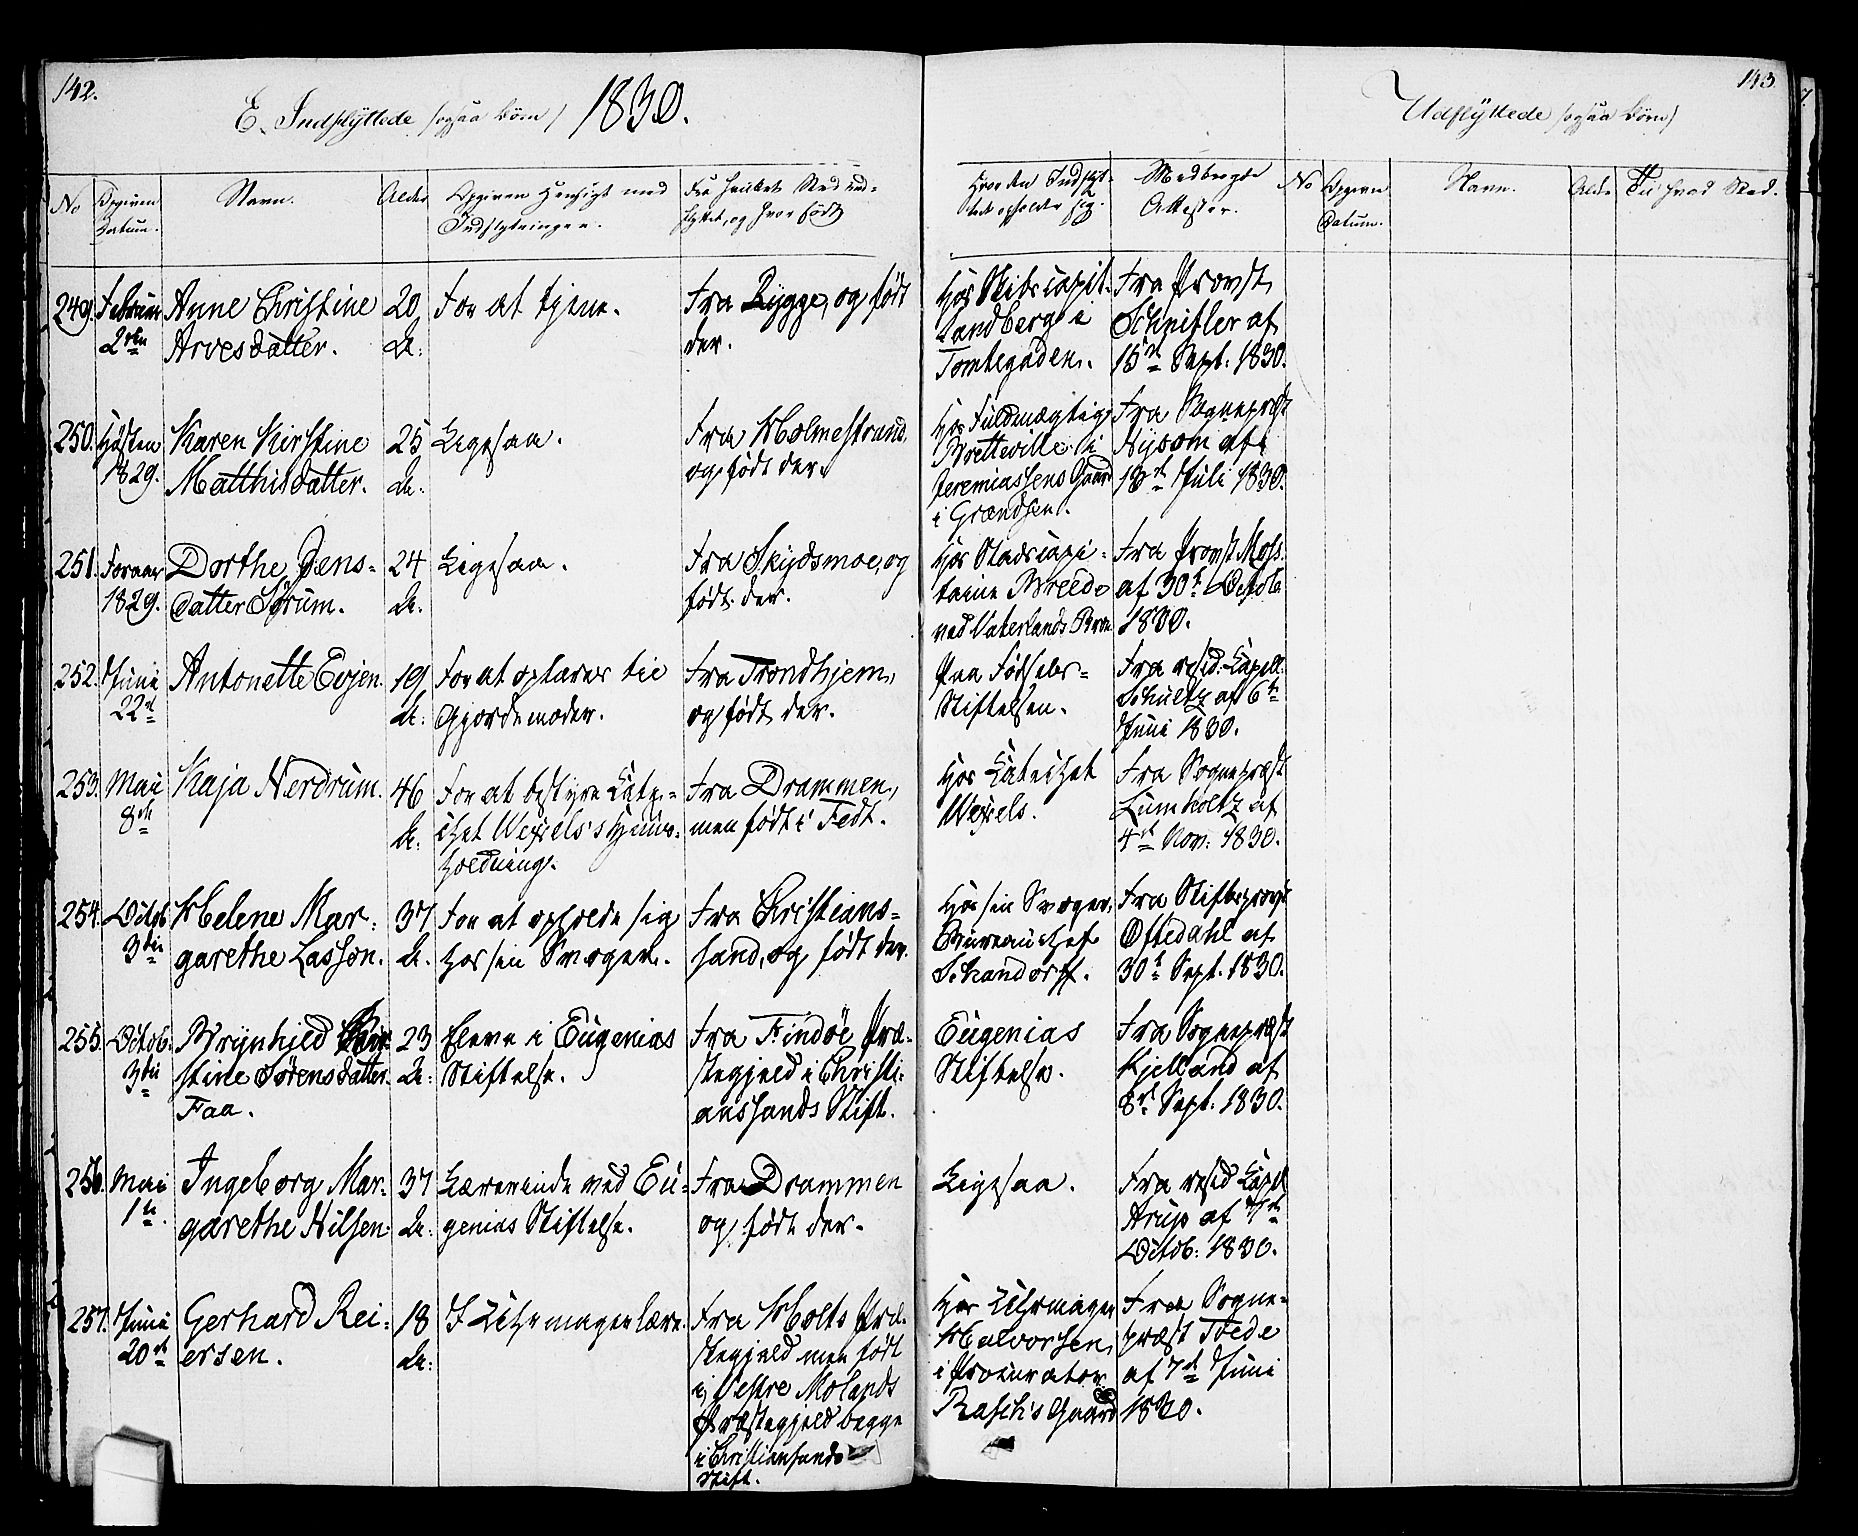 142.
E. Indflyttede (ogsaa börn) 1830.
No
Opgiven Datum.
Navn.
Alder
Opgiven Hensigt med
Indflytningen.
Fra hvilket Sted ind-
flyttet, og hvor født
Hvor den Indflyt-
tede opholder sig.
Medbragte
Attester.
249. Februar
2den
Anne Christine
Arvesdatter.
20
A:
For at tjene.
Fra Rygge, og født
der.
Hos Skibscapit.
Landberg i
Tomtegaden.
Fra Provst
Schnitler af
15de Sept: 1830.
250. Høsten
1829.
Karen Kirstine
Matthisdatter.
25
A:
Ligesaa.
Fra Holmestrand,
og født der.
Hos Fuldmægtig
Bretteville i
Jeremiassens Gaard
i Grændsen.
Fra Sognepræst
Nysom af
13de Juli 1830.
251. Foraar
1829.
Dorthe Jens-
datter Sørum.
24
A.
Ligesaa.
Fra Skydsmoe, og
født der.
Hos Stadscapi-
taine Breedo
ved Vaterlands Broe
Fra Provst Moss
af 30te Octob.
1830.
252. Juni
22de
Antonette Evjen.
19
A:
For at oplæres til
Gjordemoder.
Fra Trondhjem,
og født der.
Paa Fødsels-
Stiftelsen.
Fra resid: Capell.
Schultz af 6te
Juni 1830.
253. Mai
8de
Kaja Nerdrum.
46
A:
For at bestyre Cate-
chet Wexels's Huus-
holdning.
Fra Drammen,
men født i Fedt.
Hos Catechet
Wexels.
Fra Sognepræst
Lumholtz af
4de Nov: 1830.
254. Octob
3die
Helene Mar-
garethe Lasson.
37
A.
For at opholde sig
hos sin Svoger.
Fra Christians-
sand, og født der.
Hos sin Svoger,
Bureauchef
Schandorff.
Fra Stiftsprovst
Oftedahl af
30te Sept. 1830.
255. Octob.
3die
Brynhild Kir-
stine Sørensdatter
Faa.
23
A:
Eleve i Eugenias
Stiftelse.
Fra Findöe Præ-
stegjeld i Christi-
anssands Stift.
Eugenias
Stiftelse.
Fra Sognepræst
Kjelland af
8de Sept: 1830.
256. Mai
1ste.
Ingeborg Mar-
garethe Nilsen.
37
A:
Lærerinde ved Eu-
genias Stiftelse.
Fra Drammen
og født der.
Ligesaa.
Fra resid Capel
Arup af 7de
Octob: 1830.
257. Juni
20de
Gerhard Rei-
ersen.
18
A:
I Uhrmagerlære.
Fra Holts Præ-
stegjeld men født
i Vestre Molands
Præstegjeld begge
i Christiansands
Stift.
Hos Uhrmager
Halvorsen,
i Procurator
Rasch's Gaard
Fra Sogne-
præst Tvede
af 7de Juni
1830.
143.
Udflyttede (ogsaa börn)
No
Opgiven
Datum.
Navn.
Alder
Til hvad Sted.